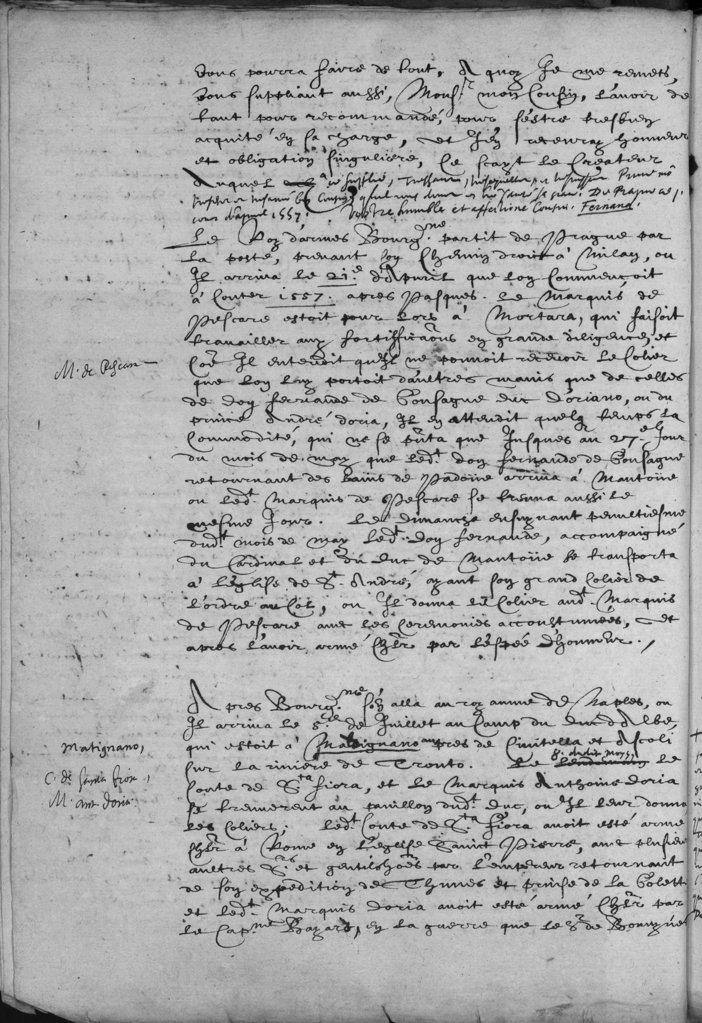 vous pourra faire de bout, A quoy Je me remets,
vous suppliant aussi, Mons.r mon Cousin, l'avoir de
tant pour recommandé, pour s'estre tresbien
acquité en sa charge, et J'en recevray honneur
et obligation singuliere, Ce scayt le Createur
Auquel
jour d'apvril 1557. Vostre humble et affectioné Cousin. Fernand.
Le Roy d'armes Bourg.ne partit de Prague par
la poste, prenant son Chemin droit à Milan, ou
Il arriva le 21.e d'Apvril que lon Commençoit
à Conter 1557. apres Pasques. Le Marquis de
Pescare estoit pour lors à Mortara, qui faisoit
travailler aux fortifficaõns en grande diligence, et
Cõe Il entendit qu'Il ne pouvoit recevoir le Colier
que lon luy portoit d'aultres mains que de celles
de don fernande de Gonsague duc d'oriano, ou du
prince André doria, Il en attendit quelq temps la
Commodité, qui ne se pñta que Jusques au 27.e Jour
du mois de may que led.t don fernande de Gonsague
retournant des bains de Padoüe arriva à Mantoüe
ou led.t Marquis de Pescare se trouva aussi le
mesme Jour. Le dimanche ensuyvant penultiesme
dud.t mois de may led.t don fernande, accompaigné
du Cardinal et du duc de Mantoüe se transporta
à l'église de S.t André, ayant son grand Colier de
l'ordre au Col, ou Il donna le Colier aud.t Marquis
de Pescare avec les Ceremonies accoustumées, et
apres l'avoir armé Chlr par l'espée d'honneur.
M. de Pescare
Apres Bourg.ne s'en alla au royaume de Naples, ou
Il arriva le 5.e de Juillet au Camp du duc d'Albe,
qui estoit à Matignano aupres de Civitella et Ascoli
sur la riviere de Tronto. Le le
Conte de S.ta fiora, et le Marquis Anthoine doria
se trouverent au pavillon dud.t duc, ou Il leur donna
les Coliers, led.t Conte de S.ta fiora avoit esté armé
Chlr à Rome en l'eglise Sainct Pierre, avec plusieurs
aultres S.rs et gentilshões par l'empereur retournant
de son expedition de Thunes et prinse de la Golette
et led.t Marquis doria avoit esté armé Chlr par
le Cap.ne Bayard, en la guerre que le S.r de
Matignano,
C. de Santa fior,
M. ant. doria.